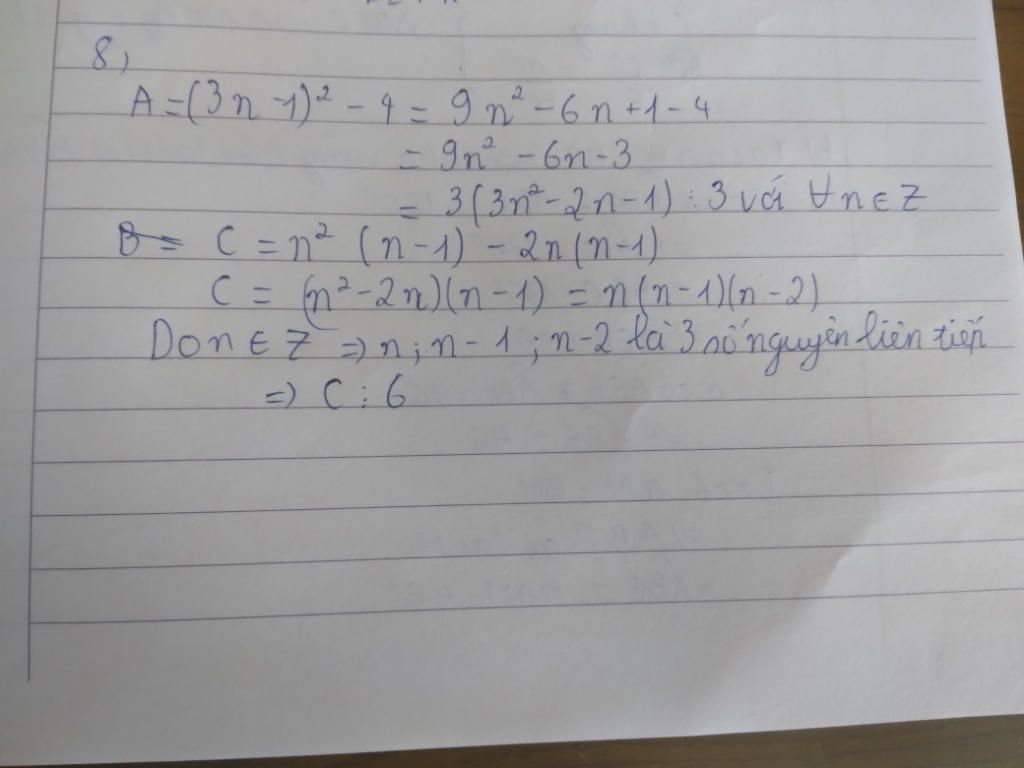 8,
A = (3n - 1)² - 4 = 9n² - 6n + 1 - 4
= 9n² - 6n - 3
= 3(3n² - 2n - 1) ⋮ 3 với ∀n ∈ Z
B = C = n² (n - 1) - 2n(n - 1)
C = (n² - 2n)(n - 1) = n(n - 1)(n - 2)
Do n ∈ Z => n; n - 1; n - 2 là 3 số nguyên liên tiếp
=> C ⋮ 6